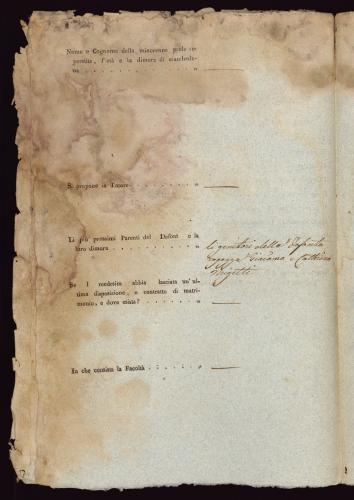 Nome e Cognome della minorenne prole su-
perstite, l'età e la dimora di ciaschedu-
no . . . . . . . . . . . „
Si propone in Tutore . . . . . . . „
Li più prossimi Parenti del Defont. e la
loro dimora . . . . . . . . „ li genitori della Defonta
Giacomo e Catterina
Se i medesimi abbia lasciata un' ul-
tima disposizione, o contratto di matri-
monio, e dove esista? . . . . . . . „
In che consista la Facoltà . . . . . „